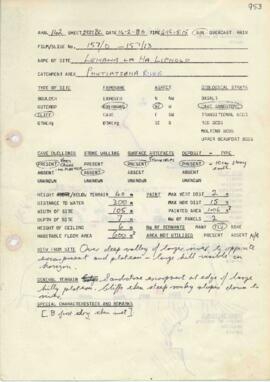 953
ARAL 162 SHEET 2927BC DATE 16-2-80 TIME SUN OVERCAST RAIN
FILM/SLIDE No. 157/0 - 157/13
NAME OF SITE LEHAHA LA HA LIPHOLO
CATCHMENT AREA PHUTIATSANA RIVER
TYPE OF SITE EXPOSURE ASPECT GEOLOGICAL STRATA
BOULDER EXPOSED N NW BASALT
OUTCROP OVERHANG CAVE SANDSTONE
CLIFF CAVE TRANSITIONAL BEDS
OTHER: OTHER: RED BEDS
MOLTENO BEDS
UPPER BEAUFORT BEDS
CAVE DWELLINGS STONE WALLING SURFACE ARTEFACTS DEPOSIT - TYPE
PRESENT PRESENT PRESENT PRESENT
ABSENT ABSENT ABSENT ABSENT
UNKNOWN UNKNOWN UNKNOWN UNKNOWN
HEIGHT BELOW TERRAIN 60 m PAINT MAX VERT DIST 2 m
DISTANCE TO WATER 300 m MAX HOR DIST 15 m
WIDTH OF SITE 105 m PAINTED AREA m²
DEPTH OF SITE 9 m No OF PANELS 5
HEIGHT OF CEILING 6 m No OF REMNANTS MANY FEW
HABITABLE FLOOR AREA 600 m² AREA NOT UTILISED PRESENT ABSENT N/A
VIEW FROM SITE Over deep valley of larger river to opposite
escarpment and plateau - large hill visible on
horizon.
GENERAL TERRAIN Sandstone escarpment at edge of large
hilly plateau. Cliffs then steep rocky slopes down to
SPECIAL CHARACTERISTICS AND REMARKS